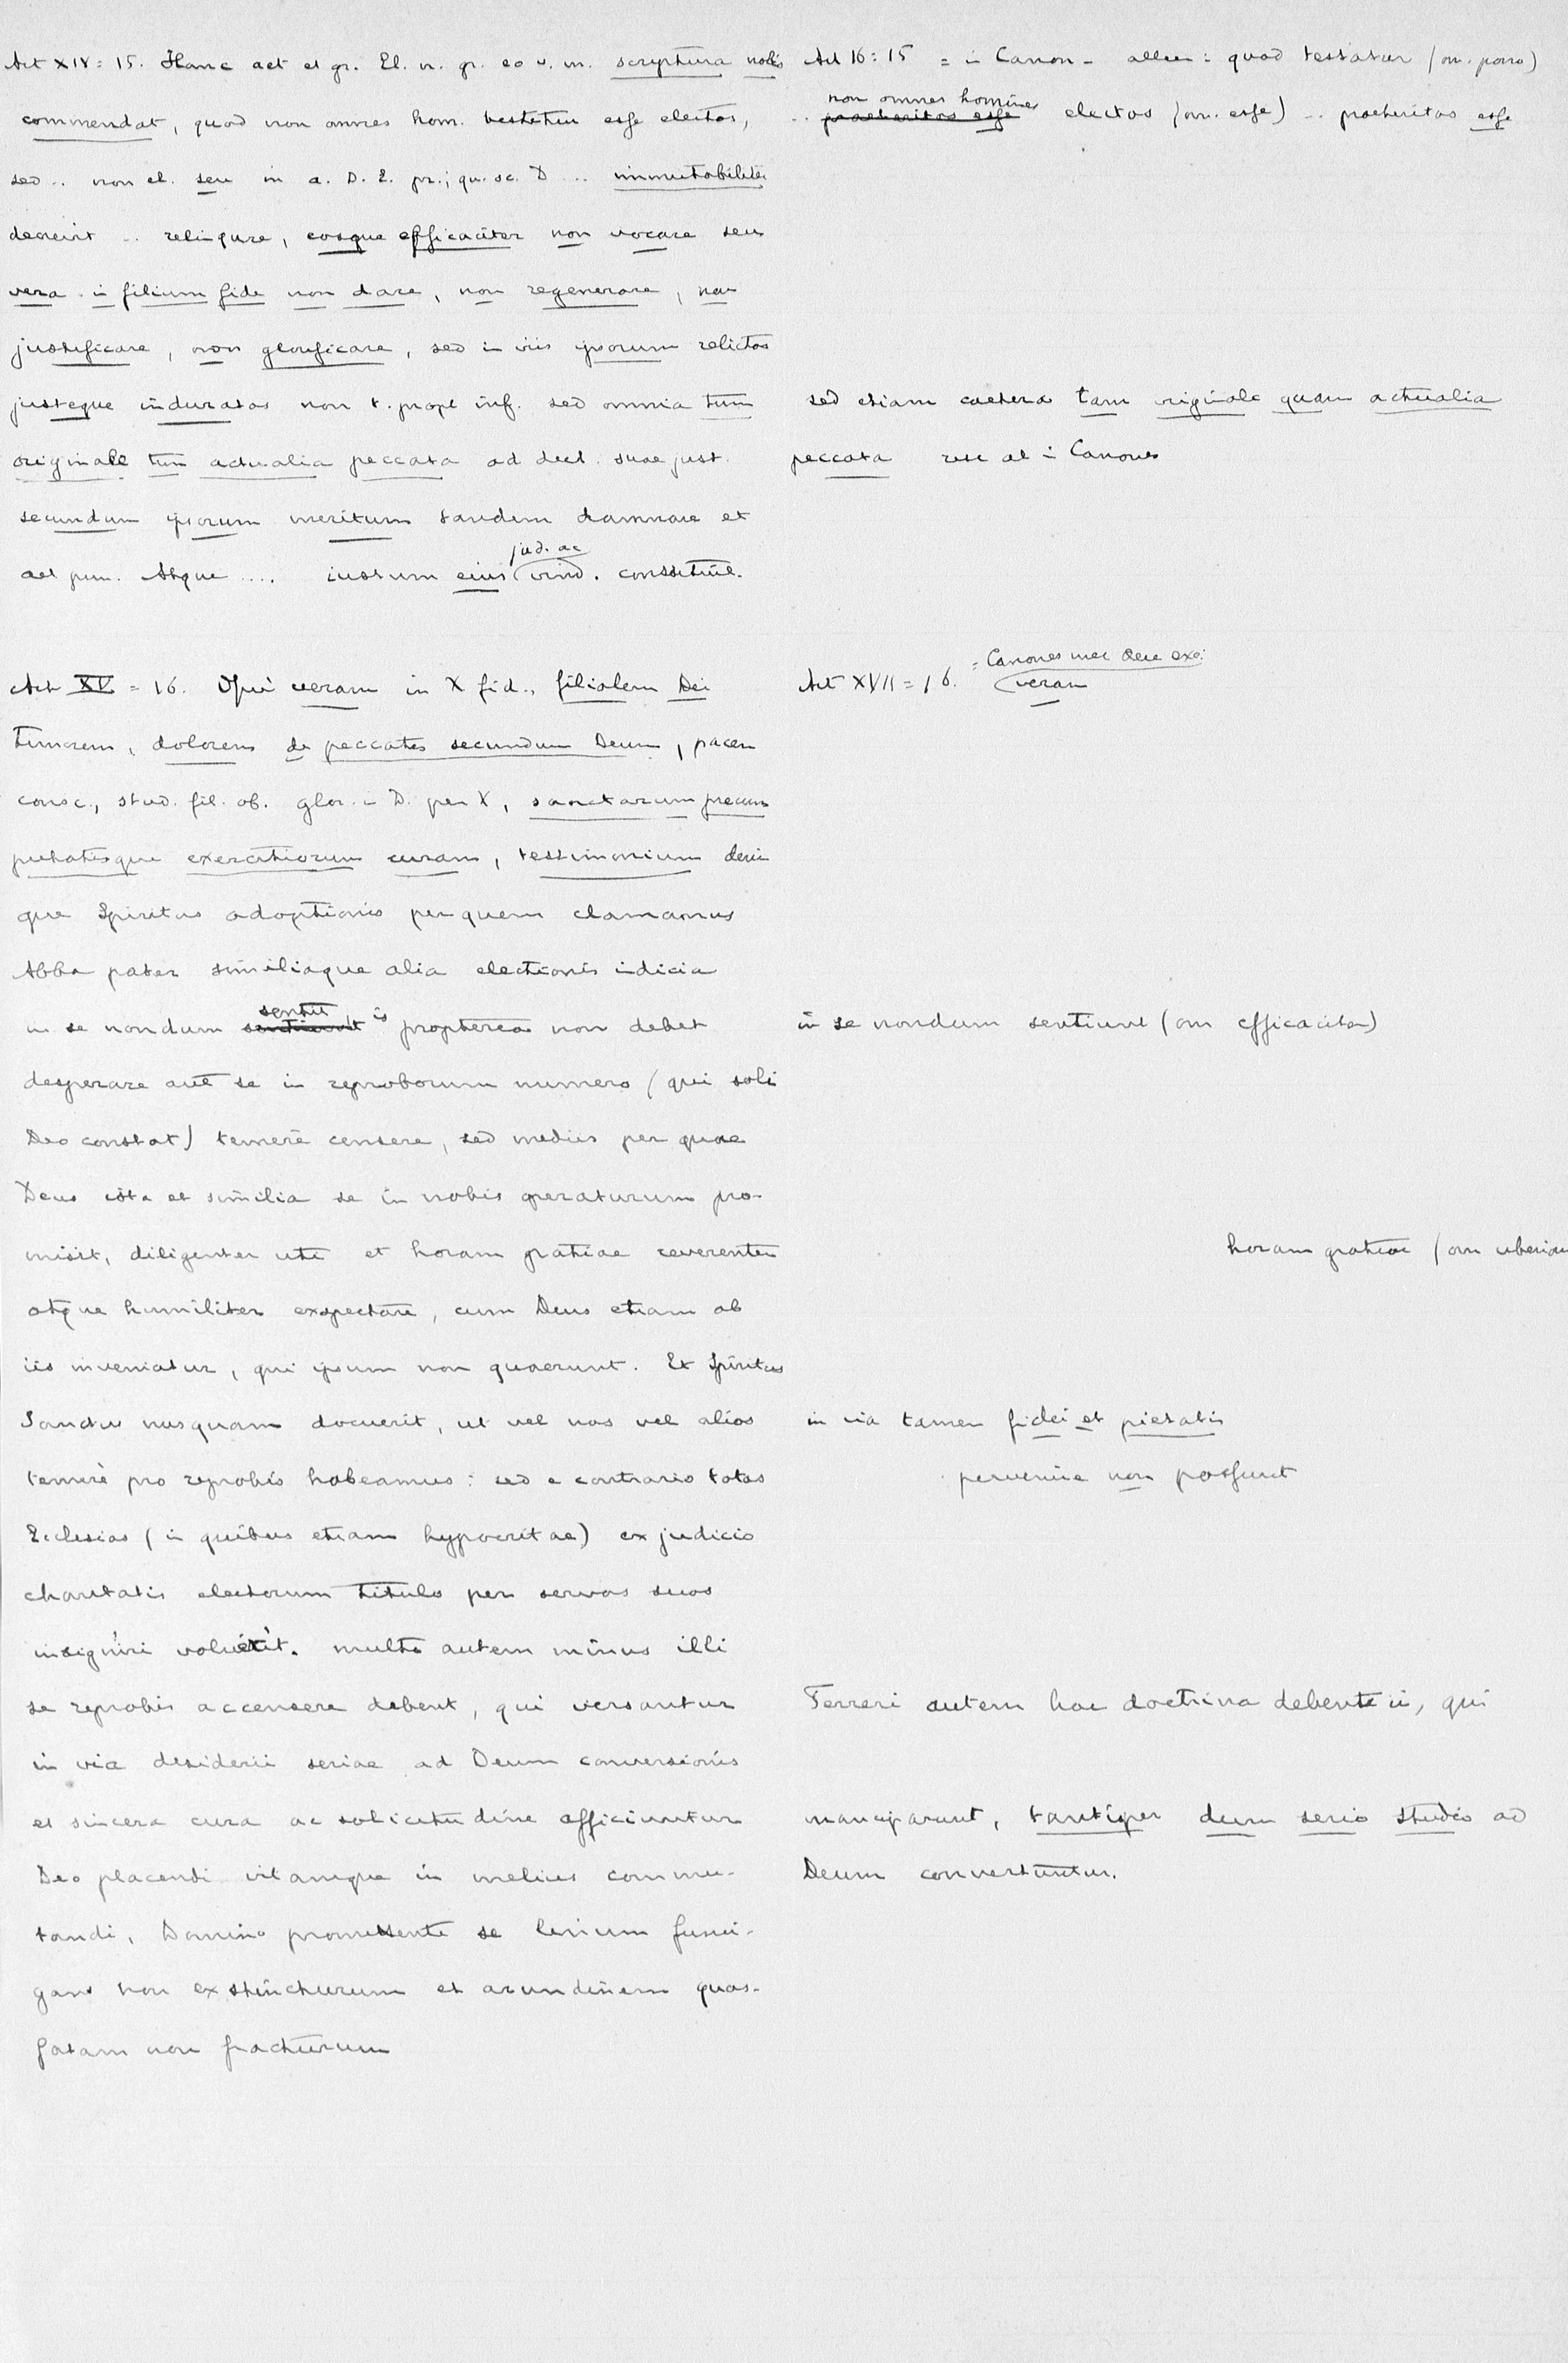 Art XIV = 15. Hanc aet et gr. El. n. gr. eo v. m. scriptura nobis
commendat, quod non omnes hom. testetur esse electos,
sed .. non el. seu in a. D. E. pr.; qu. sc. D ... immutabiliter
decrevit .. relinqure, eosque efficaciter non vocare seu
vera in filium fide non dare, non regenerare, non
justificare, non glorificare, sed in viis ipsorum relictos
justeque induratos non t. propt inf. sed omnia tum
originale tum actualia peccata ad decl. suae just.
secundum ipsorum meritum tandem damnare et
aet pun. Atque .... iustum eius jud. ac vind. constituit.
Art 16 = 15 = in Canon - alleen : quod testatur (om. porro)
.. non omnes homines
praeteritos esse electos (om. esse) .. praeteritos esse
sed etiam caetera tam originale quam actualia
peccata rest al in Canones
Art XV = 16. Qui veram in X fid., filialem Dei
timorem, dolorem de peccatis secundum Deum, pacem
consc., stud. fil. ob. glor. in D. per X, sanctarum precum
pietatisque exercitiorum curam, testimonium deni
que Spiritus adoptionis per quem clamamus
Abba pater similiaque alia electionis indicia
in se nondum sentit is propterea non debet
desperare aut se in reproborum numero (qui soli
Deo constat) temere censere, sed mediis per quae
Deus ista et similia se in nobis operaturum pro-
misit, diligenter uti et horam gratiae reverenter
atque humiliter exspectare, cum Deus etiam ab
iis inveniatur, qui ipsum non quaerunt. Et Spiritus
Sanctus nusquam docuerit, ut vel nos vel alios
temerè pro reprobis habeamus : sed e contrario totas
Ecclesias (in quibus etiam hypocritae) ex judicio
charitatis electorum titulo per servos suos
insigniri voluerit. multo autem minus illi
se reprobis accensere debent, qui versantur
in via desiderii seriae ad Deum conversionis
et sincera cura ac solicitudine afficiuntur
Deo placendi vitamque in melius commu-
tandi, Domino promittente se linum fumi-
gans non exstincturum et arundinem quas-
satam non fracturum
Art XVII = 16. = Canones
veram
in se nondum sentiunt (om efficaciter)
horam gratiae (om uberioris
in via tamen fidei et pietatis
pervenire non possunt
Terreri autem hac doctrina debent ii, qui
manciparunt, tantisper dum serio studio ad
Deum convertuntur.